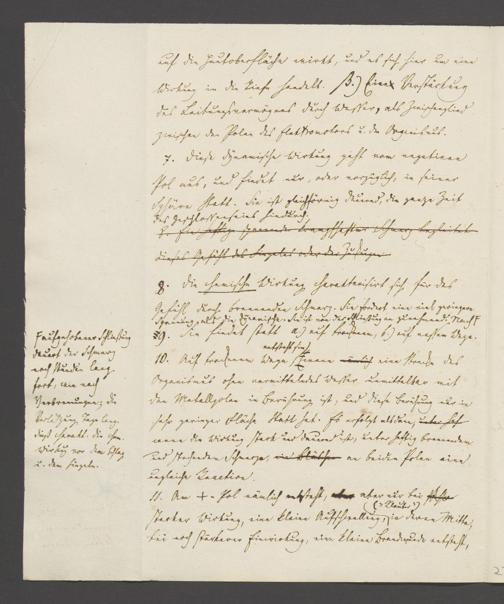 auf die Hautoberfläche wirkt, und es sich hier um eine
Wirkung in die Tiefe handelt. β.) Eine Verstärkung
des Leitungsvermögens durch Wasser, als Zwischenglied
zwischen den Polen des Elektromotors u. den Organismus.
7. Diese dynamische Wirkung geht vom negativen
Pol aus, und findet nur, oder vorzüglich, in seiner
Sphäre statt. Sie ist gleichförmig dauernd, die ganze Zeit
des Geschlossenseins hindurch.
dieses Gefühl des oder der Zuckungen
8. Die chemische Wirkung charakterisirt sich für das
Gefühl durch brennenden Schmerz. Sie fordert eine viel geringere
Spannung als die dynamische.
9. Sie findet statt a.) auf trockenem, b.) auf nassem Wege.
10. Auf trockenem Wege entsteht sie, wenn eine Strecke des
Organismus ohne vermittelndes Wasser unmittelbar mit
den Metallpolen in Berührung ist, und diese Berührung nur in
sehr geringer Fläche statt hat. Es erfolgt alsdann,
wenn die Wirkung stark und dauernd ist, unter heftig brennenden
und stechenden Schmerz, an beiden Polen eine
ungleiche Reaction.
11. Am + Pol nämlich entsteht, aber nur bei
starker Wirkung, eine kleine Aufschwellung, in deren Mitte,
bei noch stärkerer Einwirkung, eine kleine Brandwunde entsteht,
Nach aufgehobener Schließung
dauert der Schmerz
noch Stunden lang
fort, wie nach
Verbrennungen; die
Verletzung Tage lang.
Dieß charakt. die chem.
Wirkung vor dem Schlag
u. dem